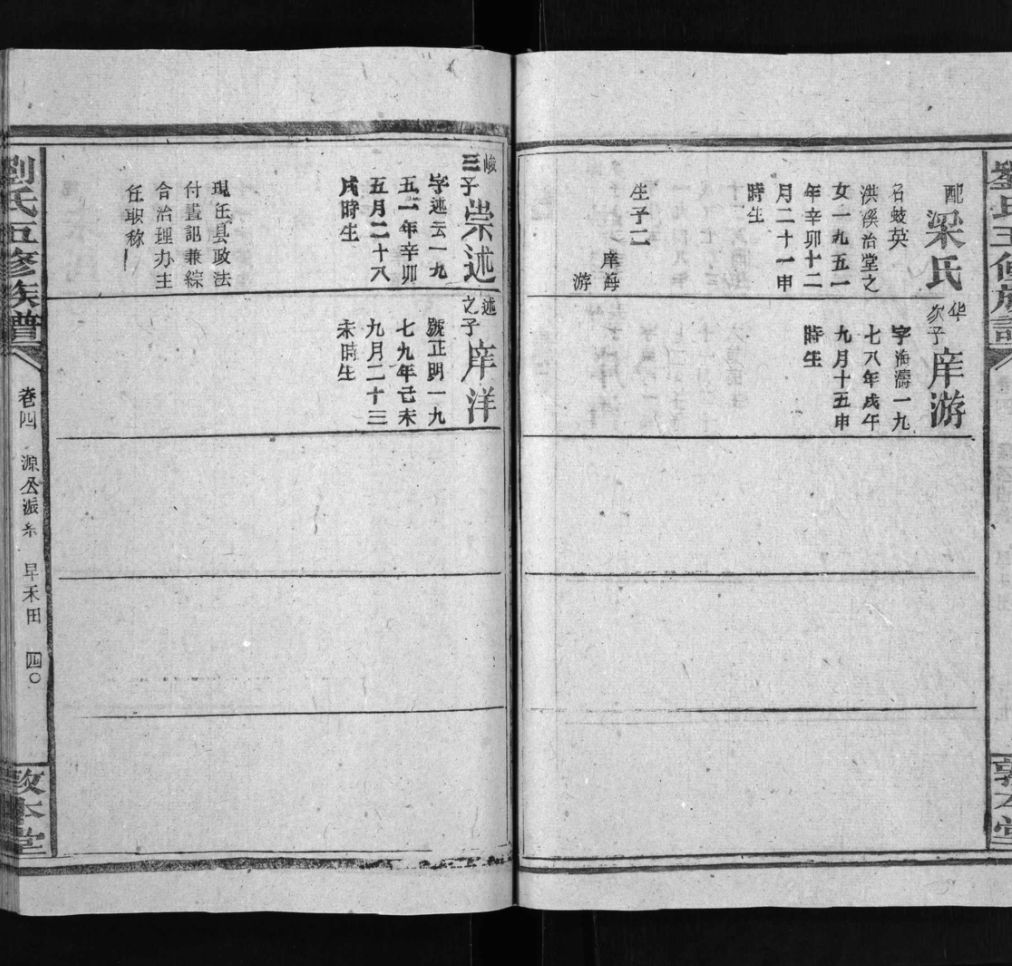 配
梁氏
名岐英
洪溪治堂之
女一九五一
年辛卯十二
月二十一申
時生
生子二
庠海
游
华
次子
庠游
字海濤一九
七八年戊午
九月十五申
時生
峻
三子
崇述
字述云一九
五一年辛卯
五月二十八
戌時生
現任县政法
付書記兼綜
合治理办主
任职称
述
之子
庠洋
號正明一九
七九年己未
九月二十三
未時生
劉氏五修族譜
卷四
源公派系
早禾田
四〇
敦本堂